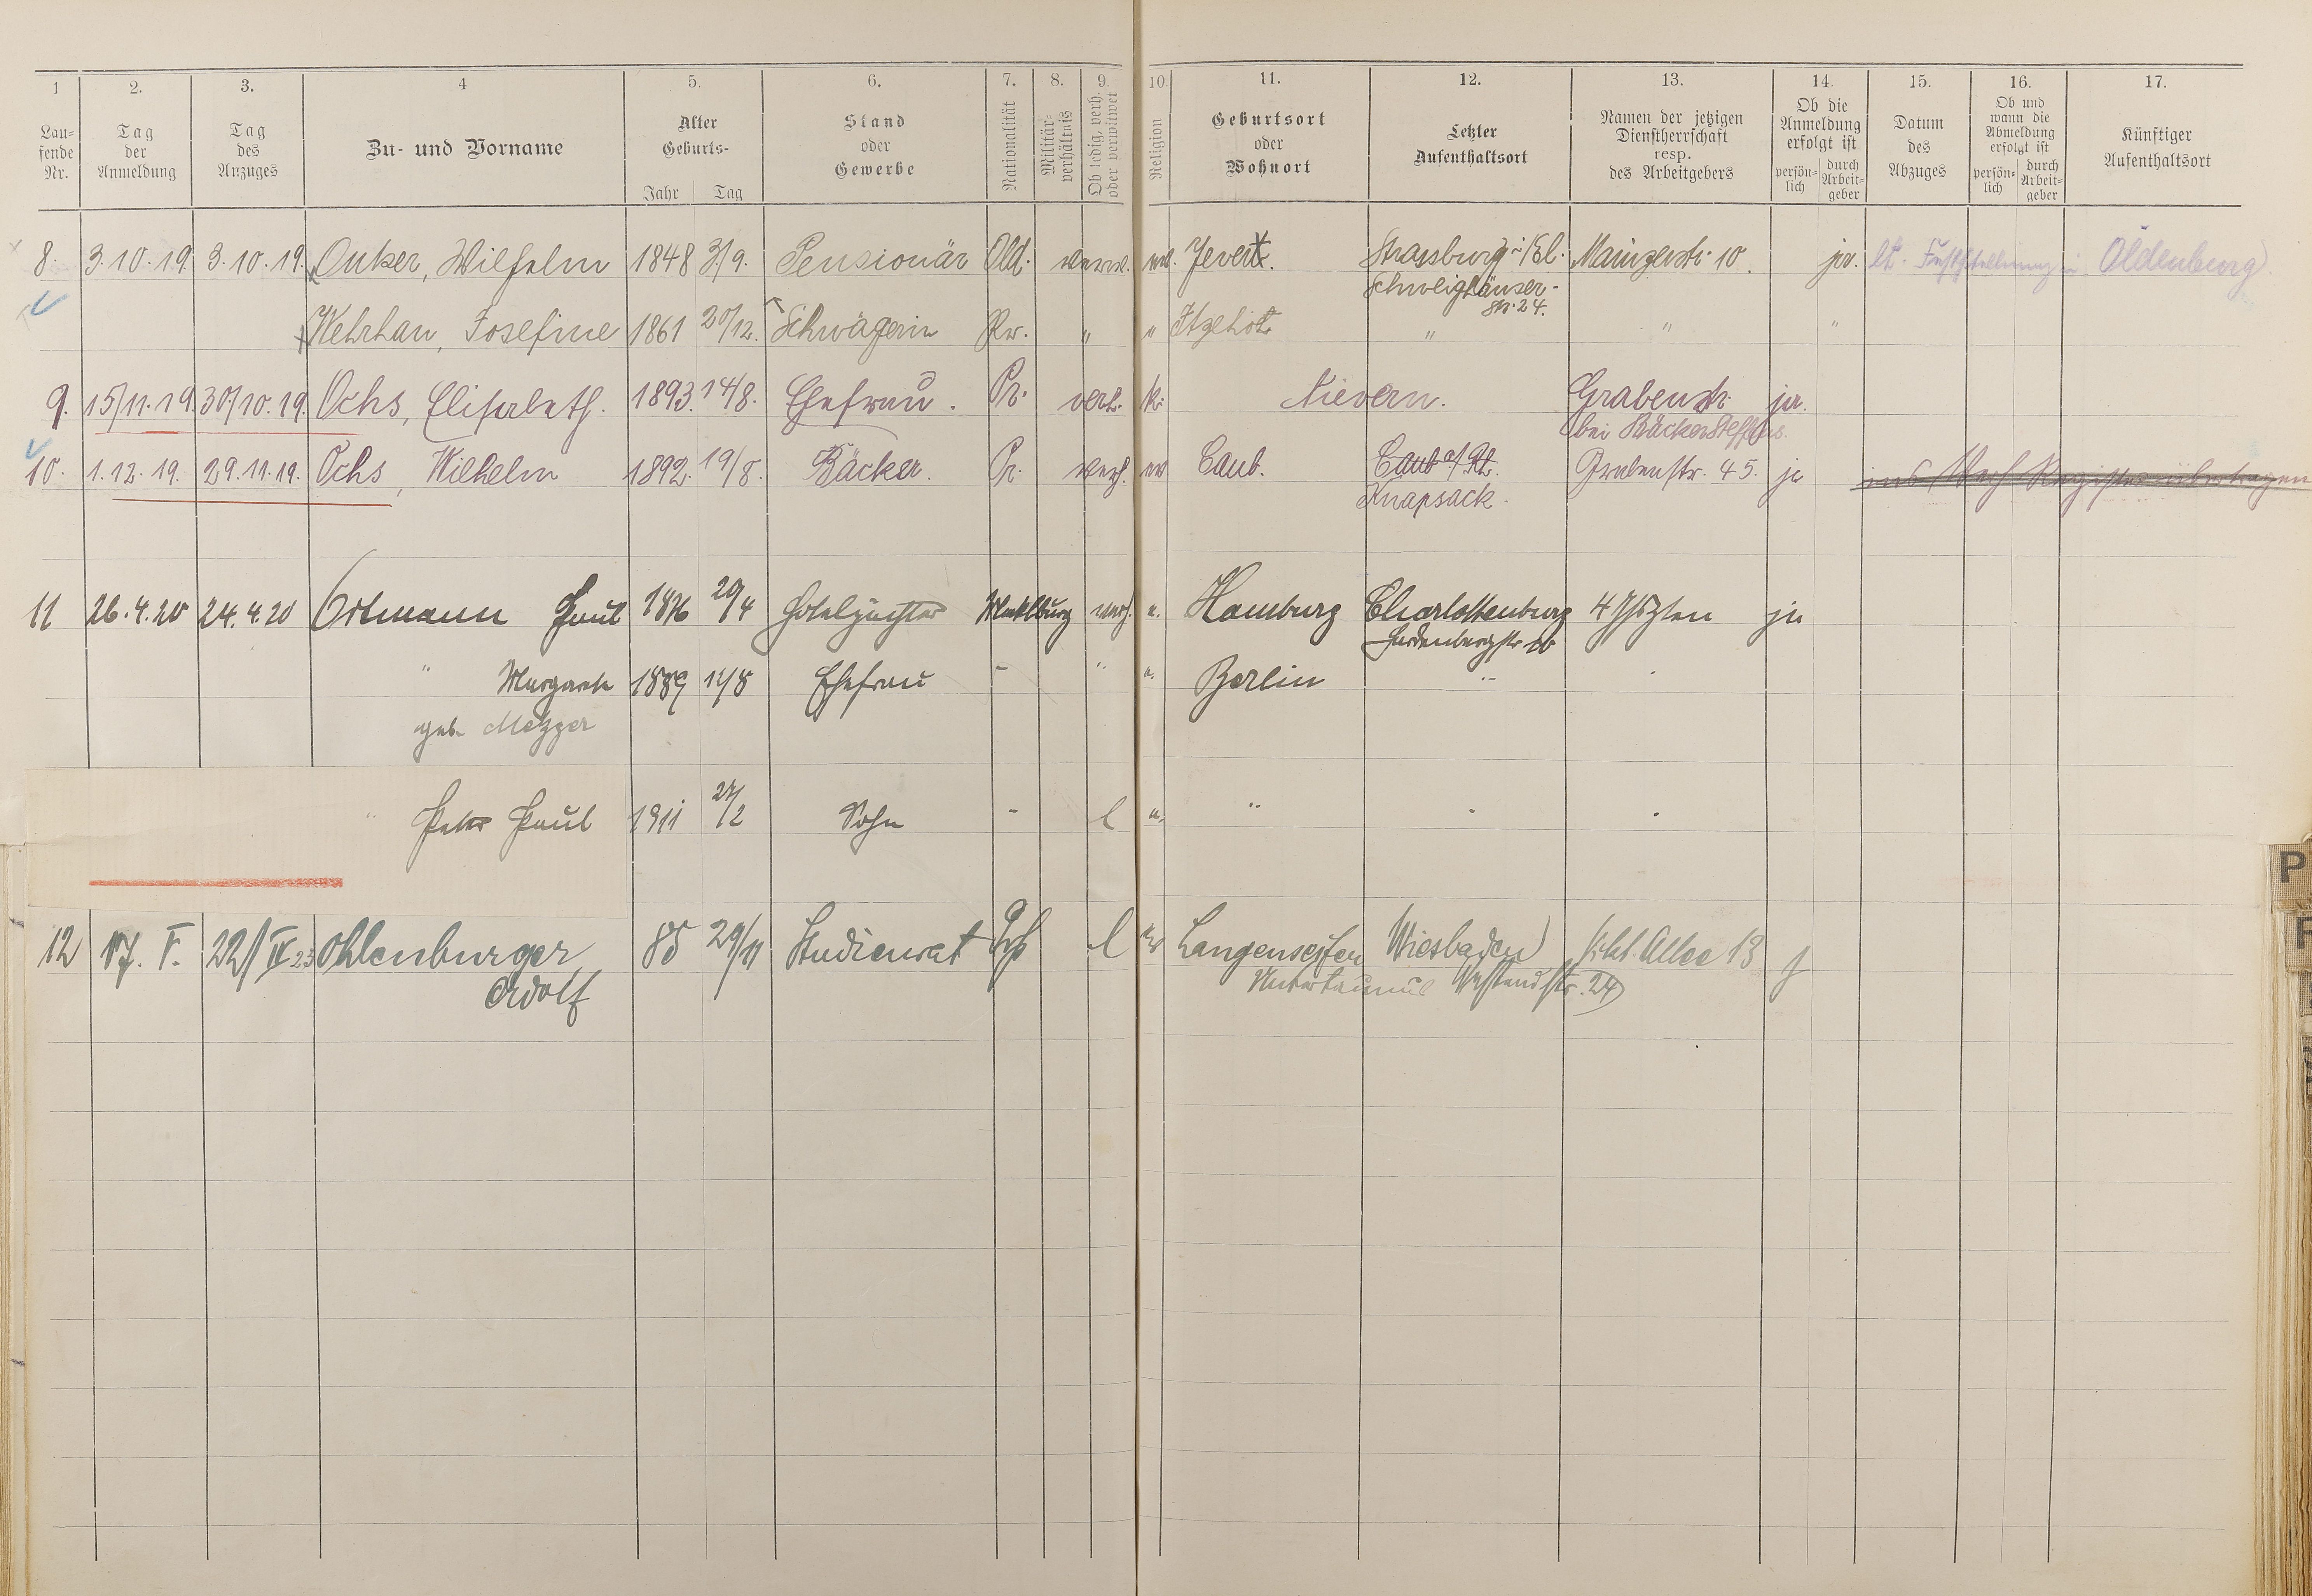 1 2. 3. 4 5. 6. 7. 8. 9. 10. 11. 12. 13. 14. 15. 16. 17.
Lau-
fende
Nr.
Tag
der
Anmeldung
Tag
des
Anzuges
Zu- und Vorname
Alter
Geburts-
Jahr Tag
Stand
oder
Gewerbe
Nationalität
Militär-
verhältnis
Ob ledig, verh.
oder verwitwet
Religion
Geburtsort
oder
Wohnort
Letzter
Aufenthaltsort
Namen der jetzigen
Dienstherrschaft
resp.
des Arbeitgebers
Ob die
Anmeldung
erfolgt ist
persön-
lich
durch
Arbeit-
geber
Datum
des
Abzuges
Ob und
wann die
Abmeldung
erfolgt ist
persön-
lich
durch
Arbeit-
geber
Künftiger
Aufenthaltsort
8. 3.10.19. 3.10.19. Onker, Wilhelm 1848 3/9. Pensionär Old. verw. Jever Strassburg i/El. Mainzerstr. 10. ja. lt. Feststellung in Oldenburg
Schweighäuser-
str. 24.
Wehrhan, Josefine 1861 20/12. Schwägerin Pr. " " Itzehoe " " "
9. 15/11.19. 30/10.19. Ochs, Elisabeth. 1893. 14/8. Ehefrau. Pr. verh. k. Nievern. Grabenstr. ja.
bei Bäcker Steffens.
10. 1.12.19. 29.11.19. Ochs, Wilhelm 1892. 19/8. Bäcker. Pr. verh. ev Caub. Caub a/Rh. Grabenstr. 45. ja ins Verh Register übertragen
Knapsack.
11 26.4.20 24.4.20 Ortmann Paul 1876 29/4 Hotelpächter Mecklburg verh. e. Hamburg Charlottenburg ja
Hardenbergstr
" Margarete 1889 14/8 Ehefrau - " e. Berlin "
geb. Metzger
" Peter Paul 1911 27/2 Sohn - l e. "
12 17. V. 22/IV 23 Ohlenburger 85 29/11 Studienrat Prß l ev Langenseifen Wiesbaden Allee 13 j
Adolf Untertaunus Westendstr. 24
P